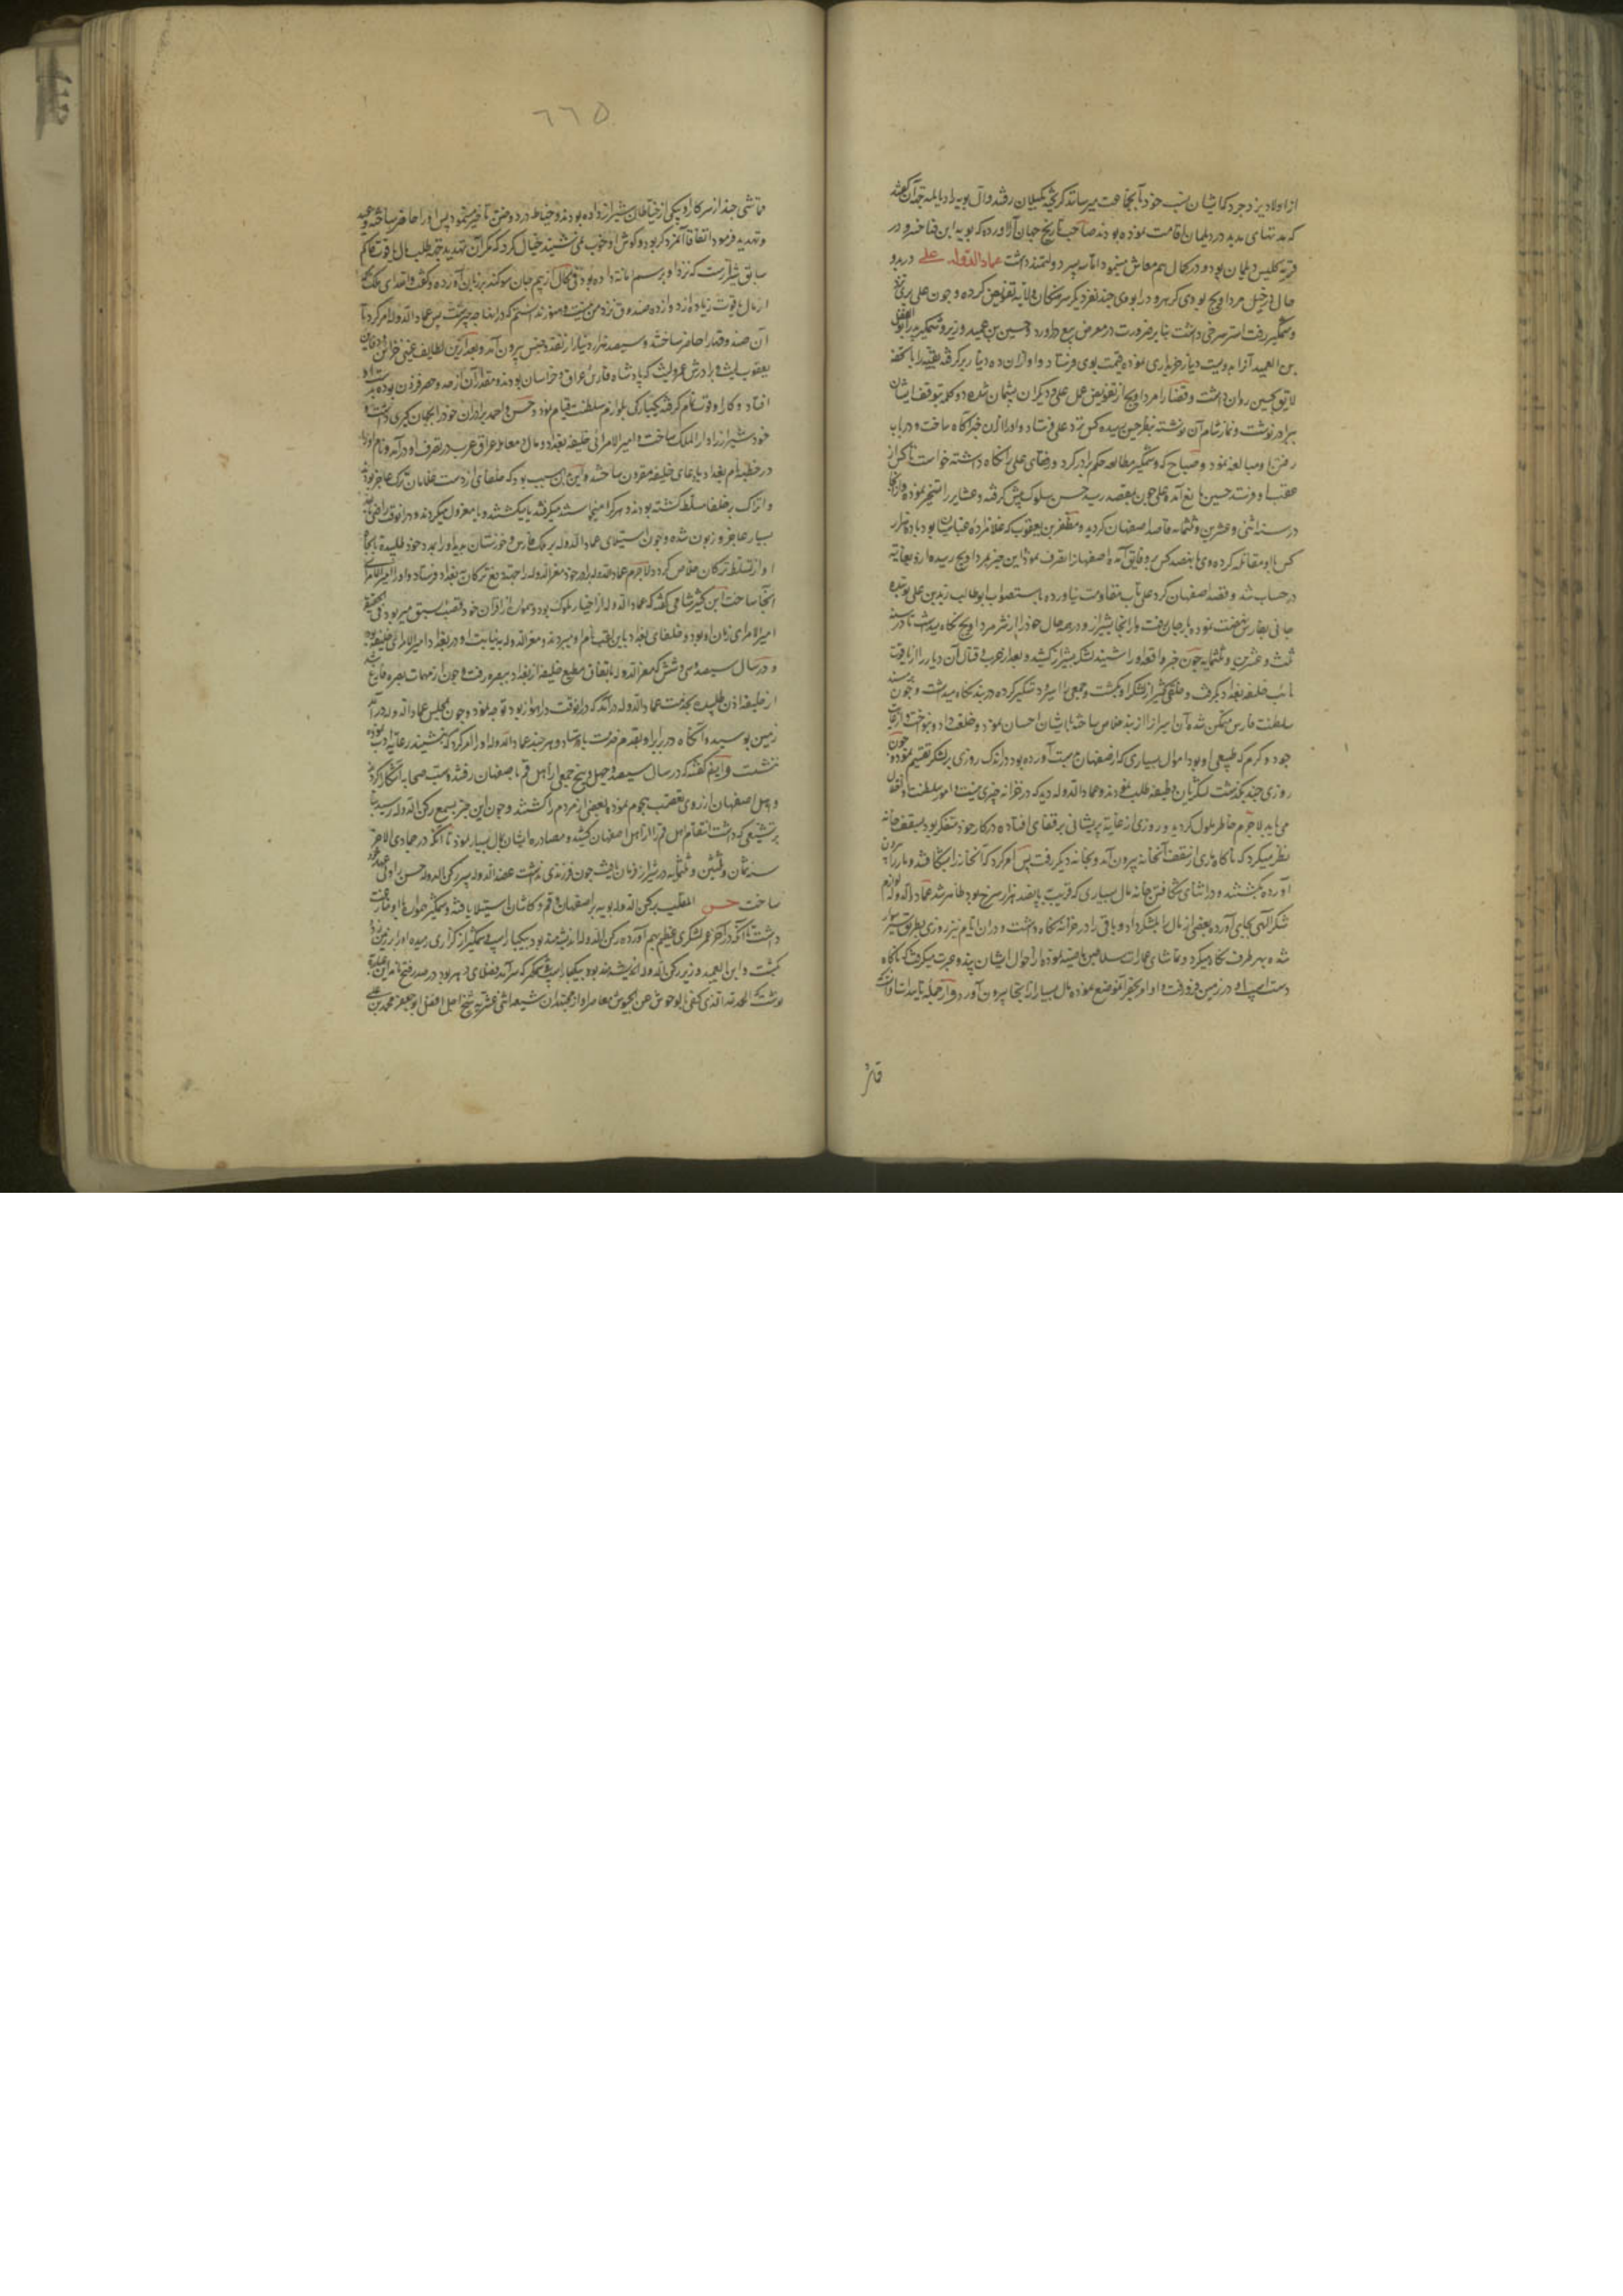 از اولاد یزدجرد کمابیشان نسب خود بآنجماعت میرسانند که بگیلان رفتند وآل بویه را دیالمه جهة آن گفتند
که مدتهای مدید در دیلمان اقامت نموده بودند صاحب تاریخ جهان آرا آورده که بویه ابن فناخسرو در
قریه کلیس دیلمان بود و در کمال هم معاش مینمود اما سه پسر دولتمند داشت عماد الدوله علی در بدو
حال در خیل مرداویج بود وی کرج را بوی چند نفر دیگر سرهنگان ولایه تفویض کرده و چون علی بری نزد
وشمگیر رفت استر سرخی داشت بنا بر ضرورت در معرض بیع درآورد و حسین بن عمید وزیر وشمگیر پدر ابوالفضل
بن العمید آنرا بدویست دینار خریداری نموده قیمت بوی فرستاد و او از آن ده دینار برگرفته بقیه را با تحفه
لایق بحسین روان داشت و قضا را مرداویج از تفویض عمل علی و دیگران پشیمان شده دو کلمه بتوقف ایشان
ببرادر نوشت و نماز شام آن نوشته بنظر حسین رسیده کس نزد علی فرستاد و او را از آن خبر آگاه ساخت و در باب
رفتن او مبالغه نمود و صباح که وشمگیر مطالعه حکم برادر کرد و رفقای علی را نگاه داشته خواست تا کس از
عقب او فرستد حسین مانع آمد و علی چون بمقصد رسید حسن سلوک پیش گرفته و عشایر را مسخر نموده و از آنجا
در سنه اثنی و عشرین و ثلثمائه قاصد اصفهان گردید و مظفر بن یعقوب که غلامزاده عباسیان بود با ده هزار
کس با او مقاتله کرده وی با نهصد کس برو فایق آمده اصفهانرا تصرف نمود این خبر بمرداویج رسیده ازو بغایة
در حساب شد و قصد اصفهان کرد علی تاب مقاومت نیاورده باستصواب ابوطالب زید بن علی نوبندجانی
جانی بفارس نهضت نموده بارجان رفت و از آنجا بشیراز و در همه حال خود را از شر مرداویج نگاه میداشت تا در سنه
ثلث و عشرین و ثلثمائه چون خبر واقعه او را شنید لشکر بشیراز کشید و بعد از حرب و قتال آن دیار را از یاقوت
نائب خلیفه بغداد بگرفت و خلقی کثیر از لشکر او بکشت و جمعی را اسیر و دستگیر کرده در بند نگاه میداشت و چون
سلطنت فارس متمکن شد آن اسیرانرا از بند خلاص ساخته با ایشان احسان نمود و خلعت داد و بنواخت و از غایت
جود و کرم که طبیعی او بود اموال بسیاری که از اصفهان بدست آورده بود در اندک روزی بر لشکر تقسیم نموده چون
روزی چند بگذشت لشکریان وظیفه طلب نمودند و عماد الدوله دید که در خزانه چیزی نیست و امور سلطنت و انفاق
می‌باید لاجرم خاطر ملول گردید و روزی از غایة پریشانی بر قفای افتاده در کار خود متفکر بود و بسقف خانه
نظر میکرد که ناگاه ماری از سقف آنخانه بیرون آمد و بخانه دیگر رفت پس امر کرد که آنخانه را بشکافند و مار را بیرون
آورده بکشند و در اثنای شکافتن خانه مال بسیاری که قریب بپانصد هزار سرخ بود ظاهر شد عماد الدوله لوازم
شکر الهی بجای آورده بعضی از مال را بلشکر داد و باقی را در خزانه نگاه داشت و در آن ایام نیز روزی بطریق سیر سوار
شده بهر طرف نگاه میکرد و تماشای عمارات سلاطین ماضیه نموده از احوال ایشان پند و عبرت میگرفت که ناگاه
دست اسب او در زمین فرو رفت و او امر بحفر آنموضع نموده مال بسیار از آنجا بیرون آورد و از جمله تأییدات او آنکه
قماشی
٦٦٥
قماشی چند از سرکار او بیکی از خیاطان شیراز داده بودند و خیاط در دوختن تأخیر مینمود پس او را حاضر ساخته وعید
و تهدید فرمود اتفاقا آنمرد کر بود و گوش او خوب نمی‌شنید خیال کرد که مگر آن تهدید جهة طلب مال یاقوت حاکم
سابق شیرازست که نزد او برسم امانت داده بود فی الحال از بیم جان سوگند بر زبان آورده و گفت والله ای ملک که
از مال یاقوت زیاده از دوازده صندوق نزد من نیست و هنوز ندانستم که در اینها چه چیز است پس عماد الدوله امر کرد تا
آن صندوقها را حاضر ساختند و سیصد هزار دینار از نقد و جنس بیرون آمد و بعد از این لطایف غیبی خزاین و دفاین
یعقوب لیث و برادرش عمرو لیث که پادشاه فارس و عراق و خراسان بودند و مقدار آن از حد و حصر فزون بود بدست او
افتاد و کار او قوت تمام گرفته بیکبارگی بلوازم سلطنت قیام نمود و حسن و احمد برادران خود را بجهان گیری داشت و
خود شیراز را دار الملک ساخت و امیر الامرائی خلیفه بغداد و مال و معامله عراق عرب در تصرف او درآمد و نام او را
در خطبه نام بغداد با دعای خلیفه مقرون ساختند و این بدین سبب بود که خلفای از دست غلامان ترک عاجز بودند
و اتراک بر خلفا مسلط گشته بودند هر کرا میخواستند میگرفتند یا میکشتند و یا معزول میکردند و در آنوقت راضی بالله
بسیار عاجز و زبون شده و چون استیلای عماد الدوله بر ملک فارس و خوزستان بدید او را بمدد خود طلبیده تا بجا
او از تسلط ترکان خلاص گردد لاجرم عماد الدوله برادر خود معز الدوله را جهة دفع ترکان به بغداد فرستاد و او را امیر الامرای
آنجا ساخت ابن کثیر شامی گفته که عماد الدوله از اخیار ملوک بود و همواره از اقران خود قصب سبق میربود فی الحقیقة
امیر الامرای زمان او بود و خلفای بغداد باین لقب نام او میبردند و معز الدوله به نیابت او در بغداد امیر الامرای خلیفه بوده
و در سال سیصد و سی و شش که معز الدوله باتفاق مطیع خلیفه از بغداد ببصره رفت و چون از مهمات بصره فارغ شد
از خلیفه اذن طلبیده بخدمت عماد الدوله درآمد که در آنوقت در اهواز بود توجه نمود و چون بمجلس عماد الدوله درآمد
زمین بوسیده و آنگاه در برابر او بقدم خدمت بایستاد و هر چند عماد الدوله او را امر کرد که بنشیند رعایة ادب نموده
ننشست و ایضا گفته که در سال سیصد و چهل و پنج جمعی از اهل قم باصفهان رفتند و سب صحابه آشکارا کردند
و اهل اصفهان از روی تعصب هجوم نموده بعضی از مردم را کشتند و چون این خبر بسمع رکن الدوله رسید بنا
بر تشیعی که داشت انتقام اهل قم را از اهل اصفهان کشید و مصادره ایشان بمال بسیار نمود تا آنکه در جمادی الاخر
سنه ثمان و ثلثین و ثلثمائه در شیراز فرمان یافت چون فرزندی نداشت عضد الدوله پسر رکن الدوله حسن را ولی عهد خود
ساخت حسن الملقب برکن الدوله بویه بر اصفهان و قم و کاشان استیلا یافت و وشمگیر همواره با او منازعت
داشت تا آنکه در آخر عمر لشکری عظیم بهم آورده رکن الدوله اندیشه‌مند بود بیکبار اسب وشمگیر از گرازی رمیده او را بر زمین زد و
بکشت و ابن العمید وزیر رکن الدوله
نوشت که الحمد لله الذی کفی بالوحوش عن الجیوش معاصر او از مجتهدان شیعه اثنی عشریه شیخ اجل افضل ابو جعفر محمد بن علی